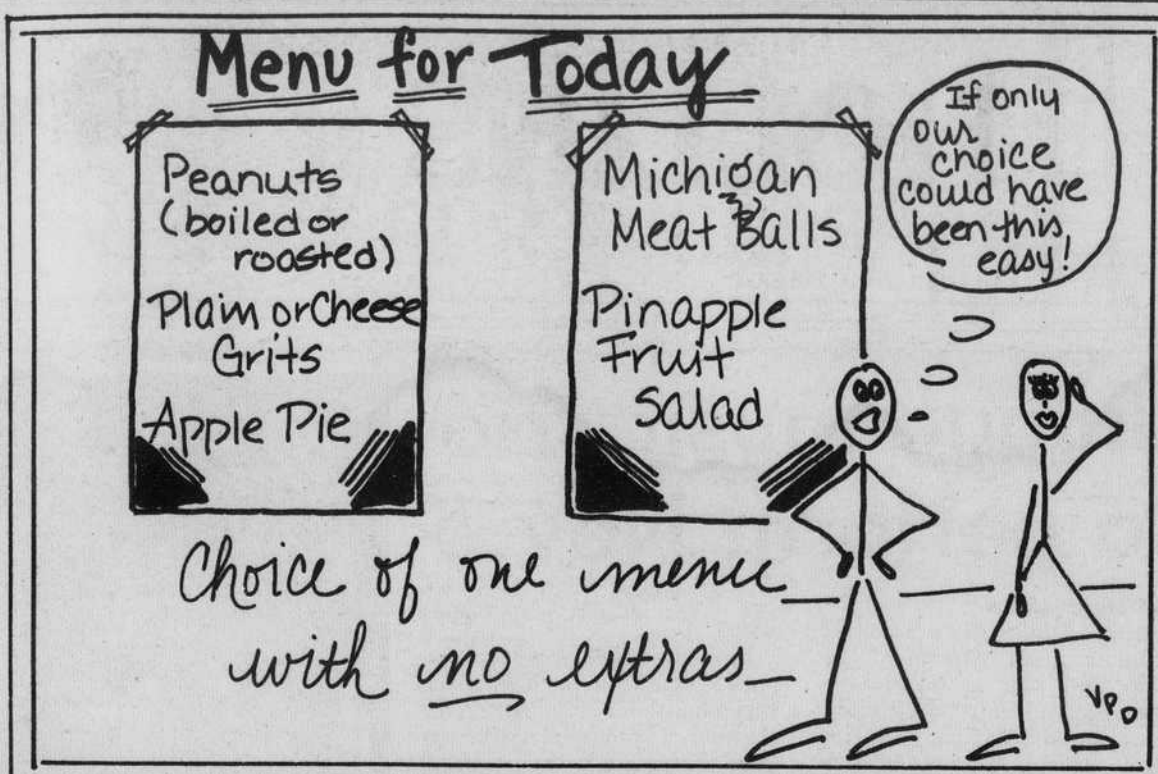 Menu for Today
Peanuts
(boiled or
roasted)
Plain or Cheese
Grits
Apple Pie
Michigan
Meat Balls
Pinapple
Fruit
Salad
If only
our
choice
could have
been this
easy!
Choice of one menu
with no extras
VPO